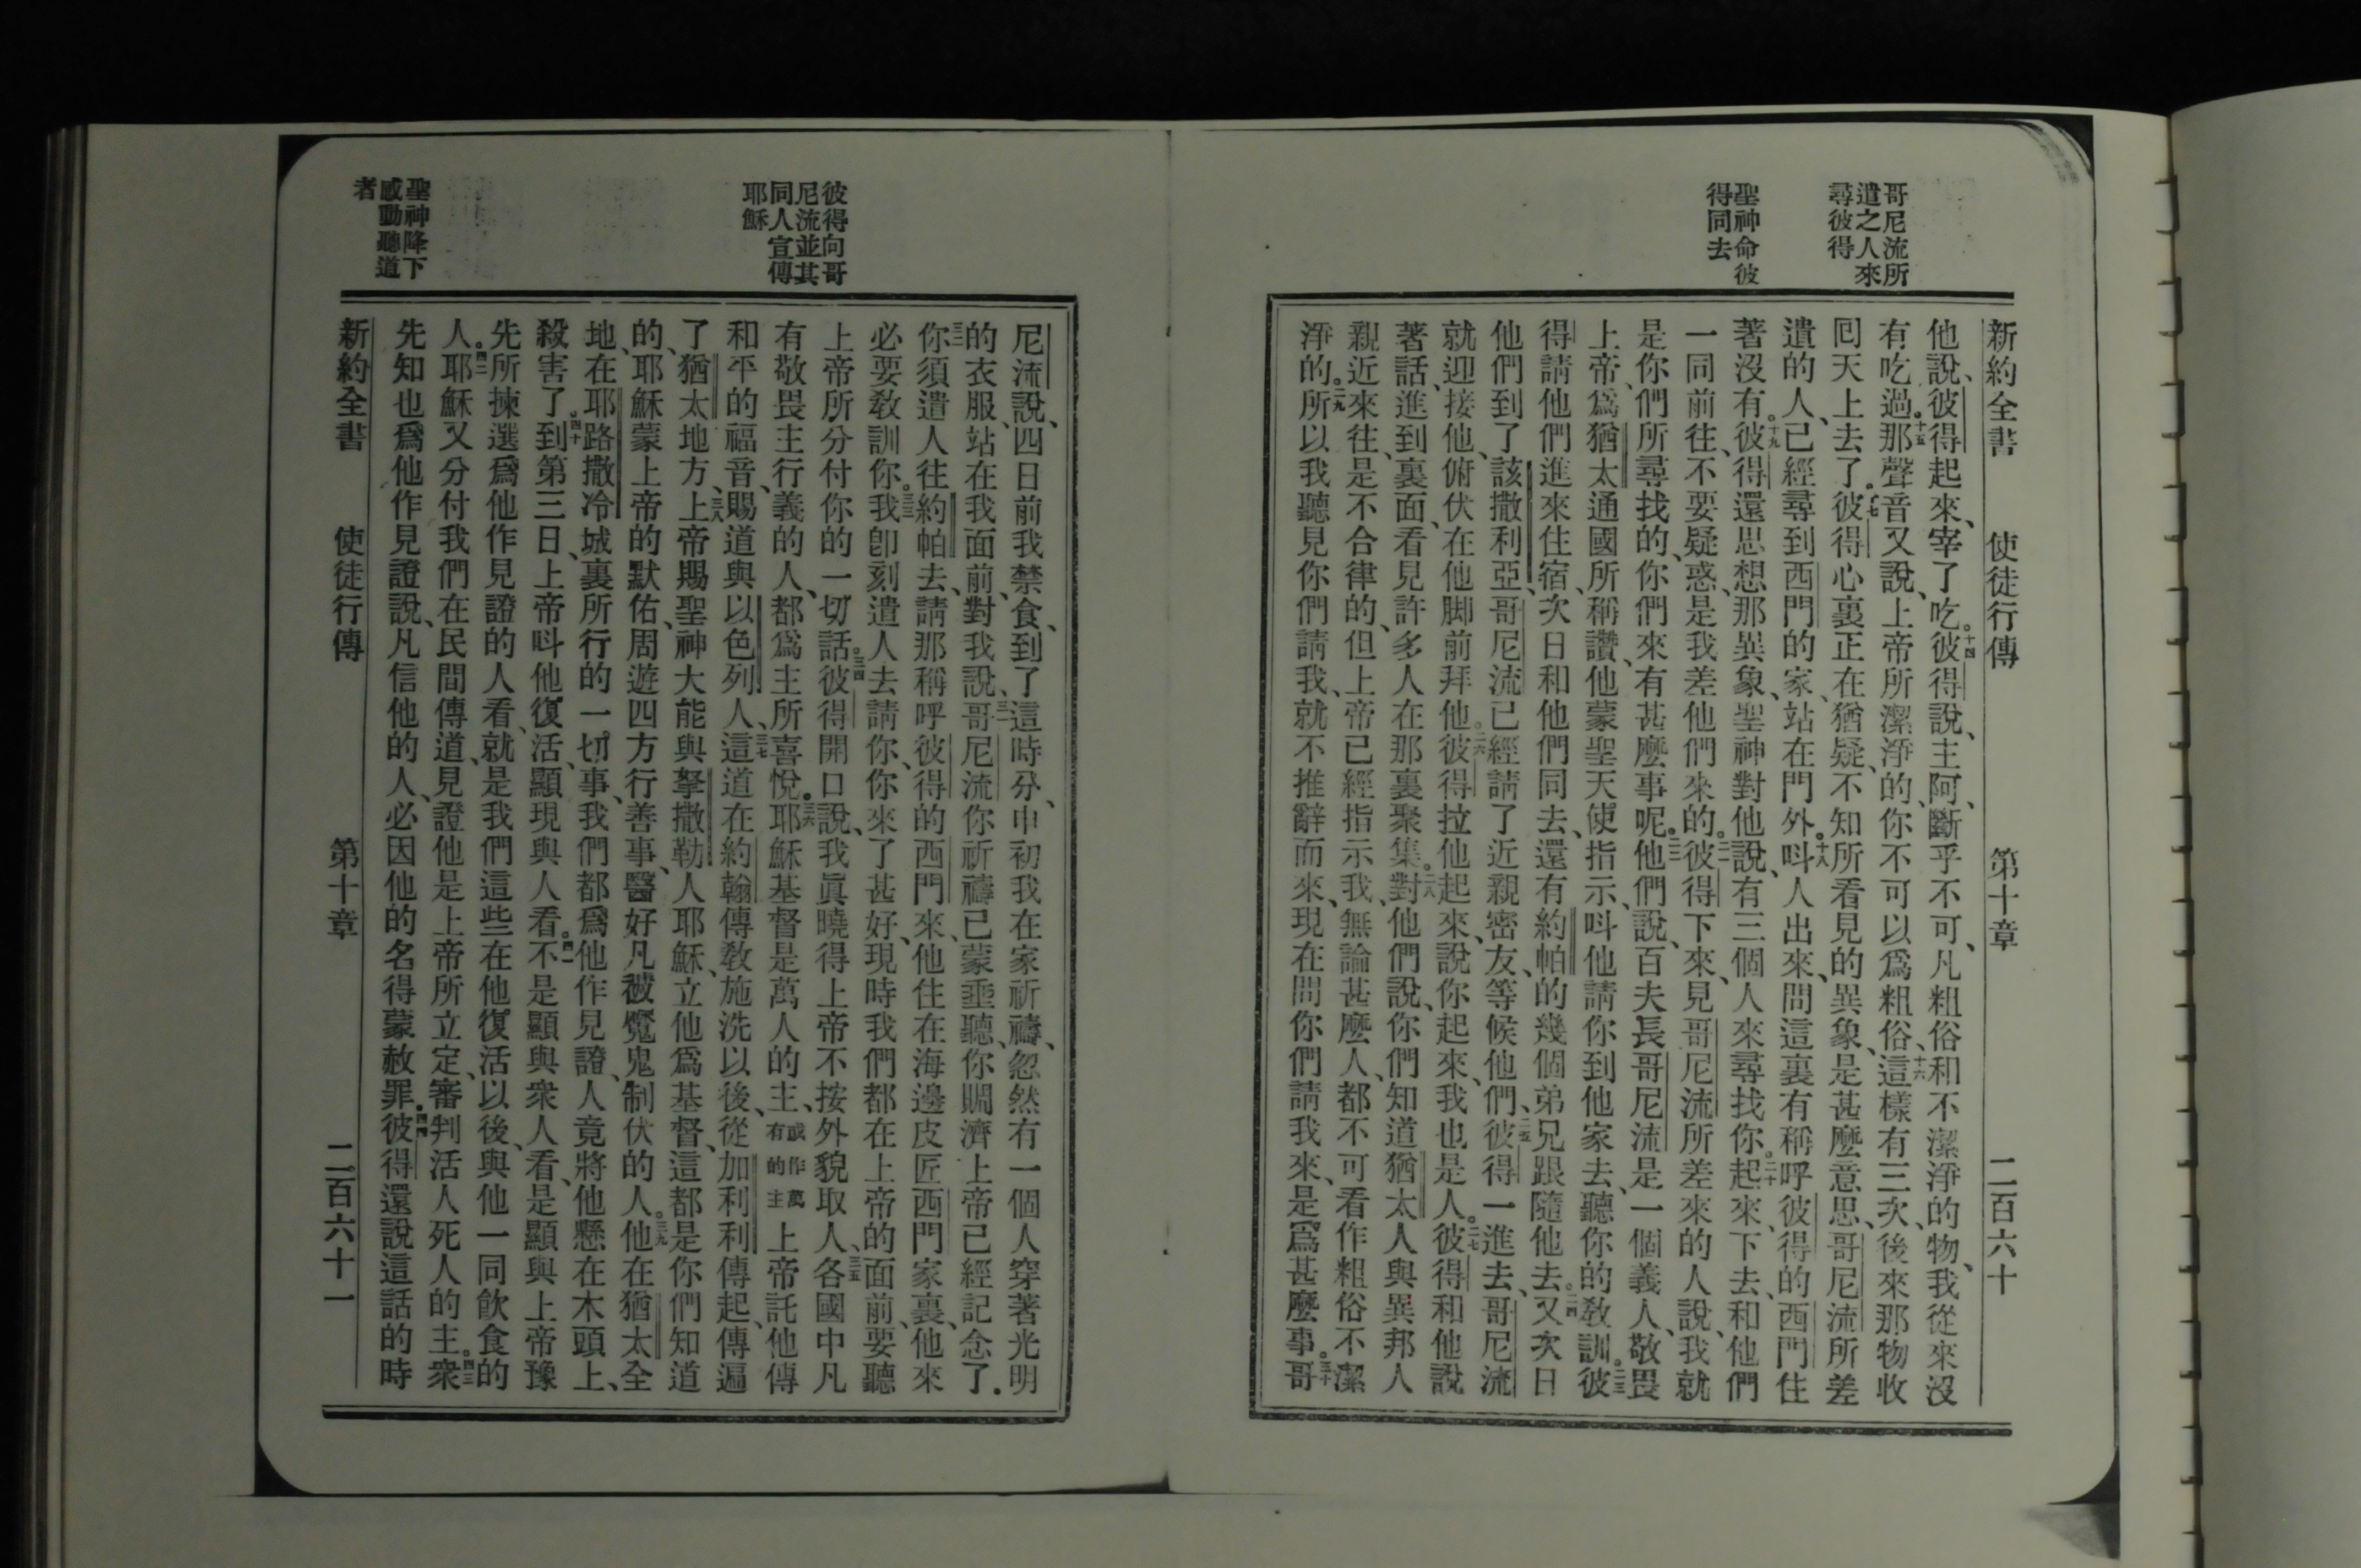 哥尼流所
遣之人來
尋彼得
聖神命彼
得同去
新約全書 使徒行傳 第十章 二百六十
他說、彼得起來、宰了吃。十四彼得說、主阿、斷乎不可、凡粗俗和不潔淨的物、我從來沒
有吃過。十五那聲音又說、上帝所潔淨的、你不可以爲粗俗、十六這樣有三次、後來那物收
囘天上去了。十七彼得心裏正在猶疑、不知所看見的異象、是甚麼意思、哥尼流所差
遣的人、已經尋到西門的家、站在門外。十八呌人出來、問這裏有稱呼彼得的西門住
著沒有。十九彼得還思想那異象、聖神對他說、有三個人來尋找你。二十起來、下去、和他們
一同前往、不要疑惑、是我差他們來的。二一彼得下來、見哥尼流所差來的人說、我就
是你們所尋找的、你們來有甚麼事呢。二二他們說、百夫長哥尼流是一個義人、敬畏
上帝、爲猶太通國所稱讚、他蒙聖天使指示、呌他請你到他家去、聽你的敎訓。二三彼
得請他們進來住宿、次日和他們同去、還有約帕的幾個弟兄跟隨他去。二四又次日
他們到了該撒利亞、哥尼流已經請了近親密友、等候他們、二五彼得一進去、哥尼流
就迎接他、俯伏在他脚前拜他。二六彼得拉他起來、說你起來、我也是人。二七彼得和他說
著話、進到裏面、看見許多人在那裏聚集。二八對他們說、你們知道猶太人與異邦人
親近來往、是不合律的、但上帝已經指示我、無論甚麼人、都不可看作粗俗不潔
淨的。二九所以我聽見你們請我、就不推辭而來、現在問你們請我來、是爲甚麼事。三十哥
彼得向哥
尼流並其
同人宣傳
耶穌
聖神降下
感動聽道
者
尼流說、四日前我禁食、到了這時分、申初我在家祈禱、忽然有一個人穿著光明
的衣服、站在我面前、對我說、三一哥尼流你祈禱已蒙垂聽、你賙濟上帝已經記念了。
三二你須遣人往約帕去、請那稱呼彼得的西門來、他住在海邊皮匠西門家裏、他來
必要敎訓你。三三我卽刻遣人去請你、你來了甚好、現時我們都在上帝的面前、要聽
上帝所分付你的一切話。三四彼得開口說、我眞曉得上帝不按外貌取人、三五各國中凡
有敬畏主行義的人、都爲主所喜悅。三六耶穌基督是萬人的主、或作萬有的主上帝託他傳
和平的福音、賜道與以色列人、三七這道在約翰傳敎施洗以後、從加利利傳起、傳遍
了猶太地方、三八上帝賜聖神大能與拏撒勒人耶穌、立他爲基督、這都是你們知道
的、耶穌蒙上帝的默佑、周遊四方行善事、醫好凡被魔鬼制伏的人。三九他在猶太全
地、在耶路撒冷城裏所行的一切事、我們都爲他作見證、人竟將他懸在木頭上、
殺害了。四十到第三日、上帝呌他復活、顯現與人看。四一不是顯與衆人看、是顯與上帝豫
先所揀選爲他作見證的人看、就是我們這些在他復活以後、與他一同飮食的
人。四二耶穌又分付我們在民間傳道、見證他是上帝所立定、審判活人死人的主。四三衆
先知也爲他作見證說、凡信他的人、必因他的名得蒙赦罪。四四彼得還說這話的時
新約全書 使徒行傳 第十章 二百六十一